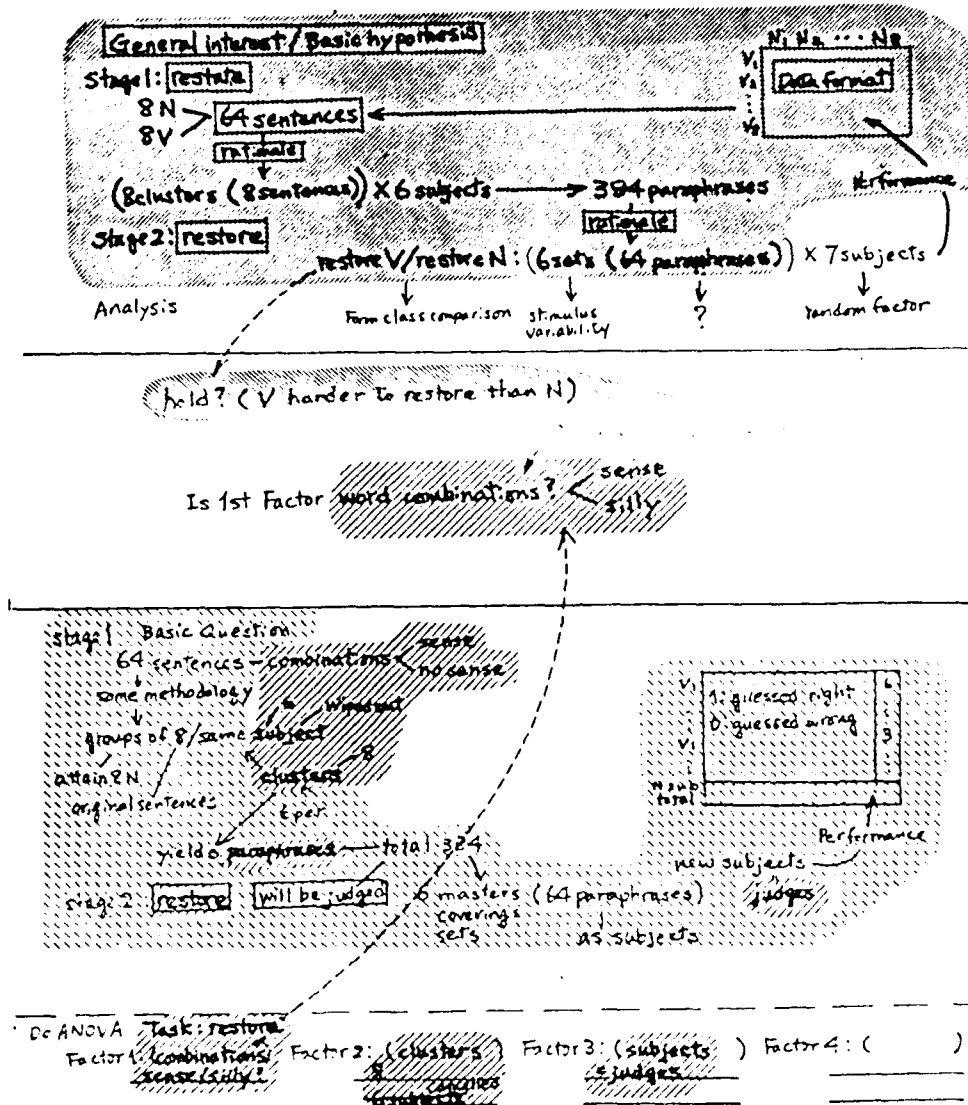 General interest/Basic hypothesis
N1 N2 ... N8
Stage1: restate
V1
V2
⋮
V8
Data format
8N
8V
64 sentences
rationale
(8clusters (8sentences)) × 6 subjects → 384 paraphrases
Performance
rationale
Stage2: restore
restore V/restore N: (6sets (64 paraphrases)) × 7 subjects
Analysis
Form class comparison
stimulus
variability
?
random factor
hold? (V harder to restore than N)
Is 1st Factor word combinations?
sense
silly
Stage1 Basic Question
64 sentences – combinations
sense
no sense
some methodology
6
groups of 8/same subject
attain 8N
clusters
8
original sentences
per
yields paraphrases – total 384
V1
1: guessed right
0: guessed wrong
6
V1
3
N sub
total
Performance
new subjects
judges
stage 2 restore will be judged 6 masters (64 paraphrases)
coverings
sets
as subjects
Do ANOVA Task: restore
Factor1: (combinations
sense/silly?
Factor 2: (clusters )
8
Factor 3: (subjects )
judges
Factor 4: ( )